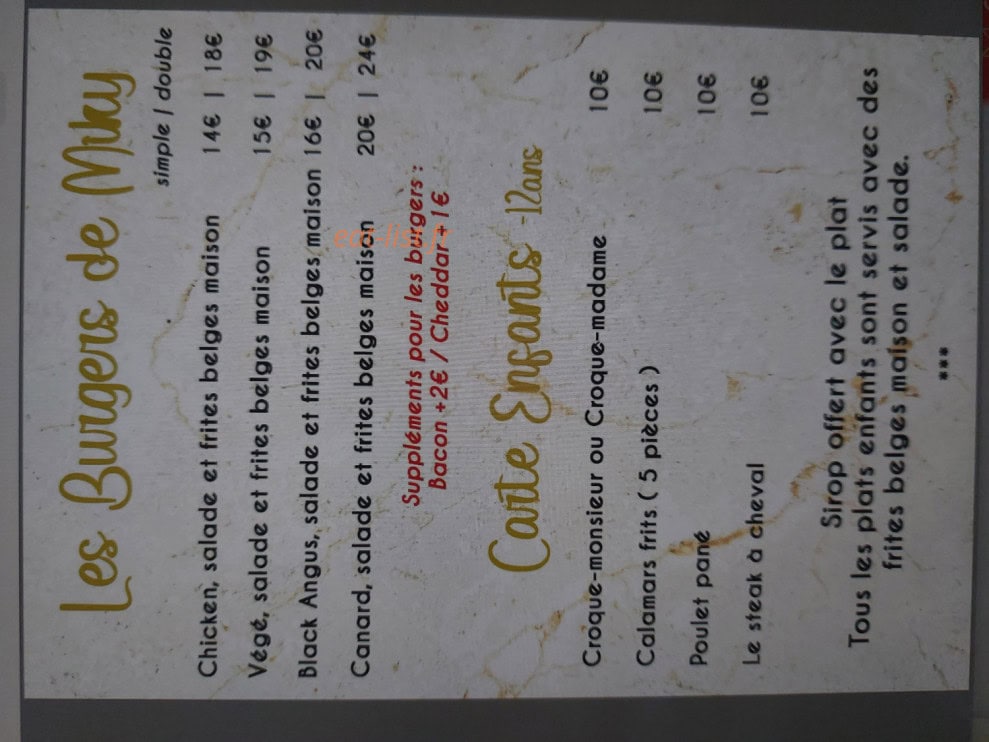 Les Burgers de Miky
simple / double
Chicken, salade et frites belges maison 14€ | 18€
Végé, salade et frites belges maison 15€ | 19€
Black Angus, salade et frites belges maison 16€ | 20€
Canard, salade et frites belges maison 20€ | 24€
Suppléments pour les burgers :
Bacon +2€ / Cheddar + 1€
eat-list.fr
Carte Enfants -12ans
Croque-monsieur ou Croque-madame 10€
Calamars frits ( 5 pièces ) 10€
Poulet pané 10€
Le steak à cheval 10€
Sirop offert avec le plat
Tous les plats enfants sont servis avec des
frites belges maison et salade.
***